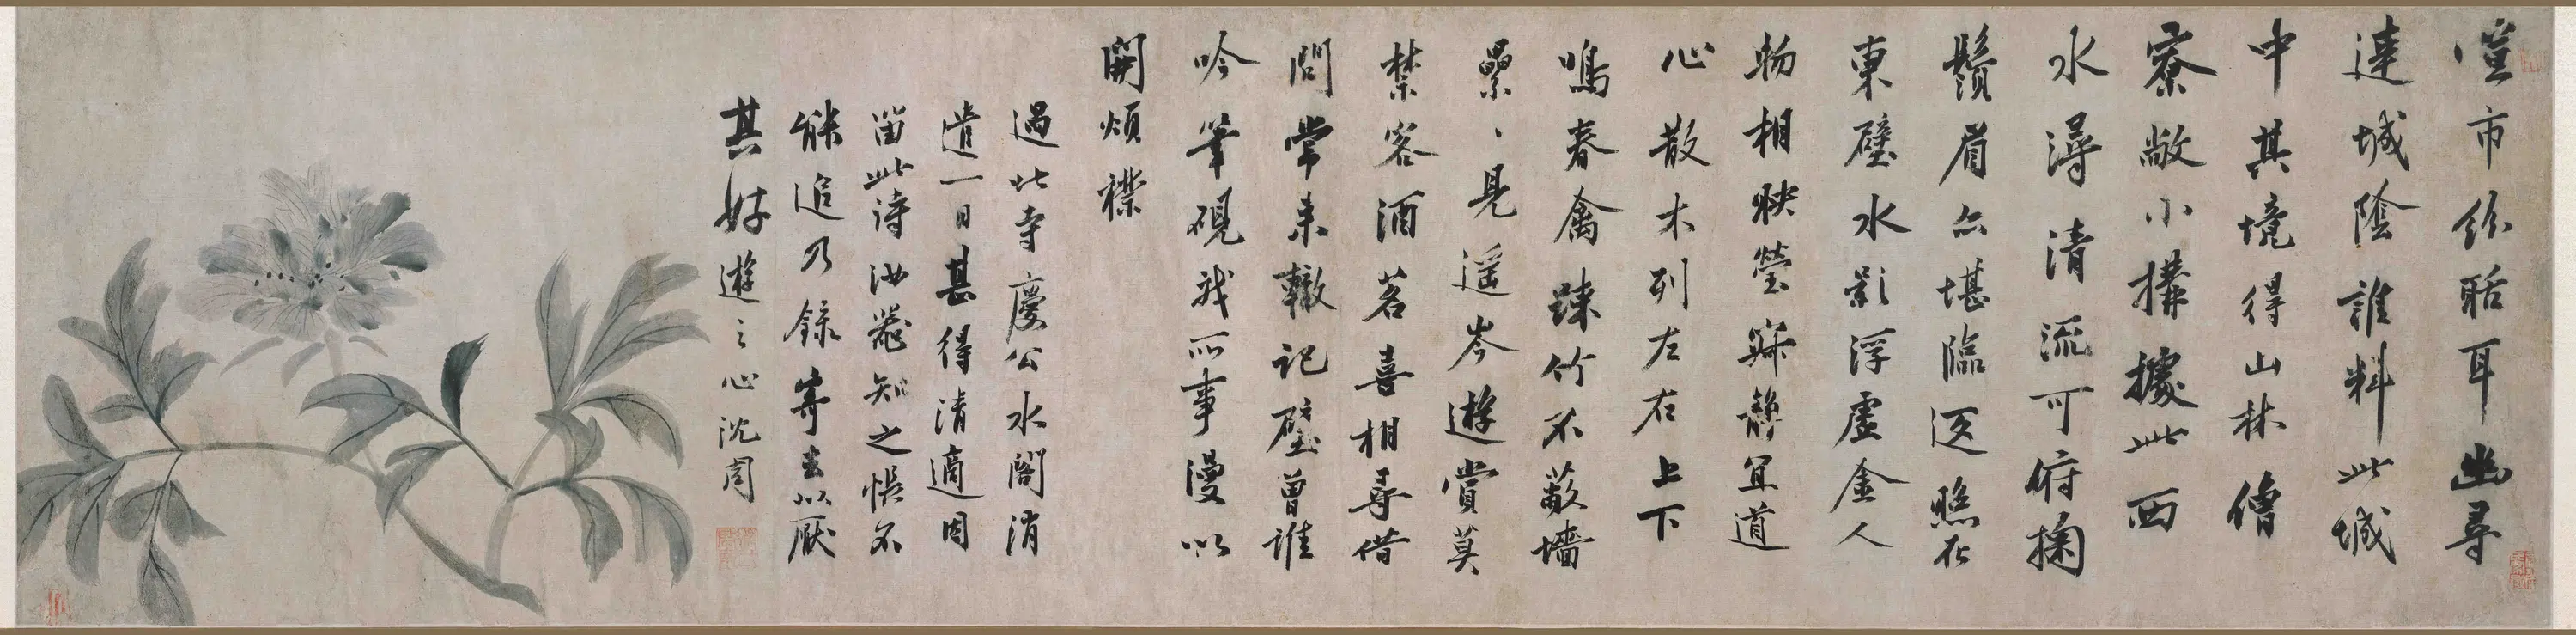 喧市紛聒耳幽尋
達城陰誰料此城
中其境得山林僧
寮敞小搆據此西
水潯清流可俯掬
鬚眉亦堪臨返照在
東壁水影浮虛金人
物相映瑩寂靜宜道
心散木列左右上下
鳴春禽疎竹不蔽墻
纍〻見遥岑遊賞莫
禁客酒茗喜相尋借
問常来轍記壁曾誰
吟筆硯我所事漫以
開煩襟
過此寺慶公水閣消
遣一日甚得清適因
留此詩汝器知之恨不
能追乃錄寄去以厭
其好遊之心沈周